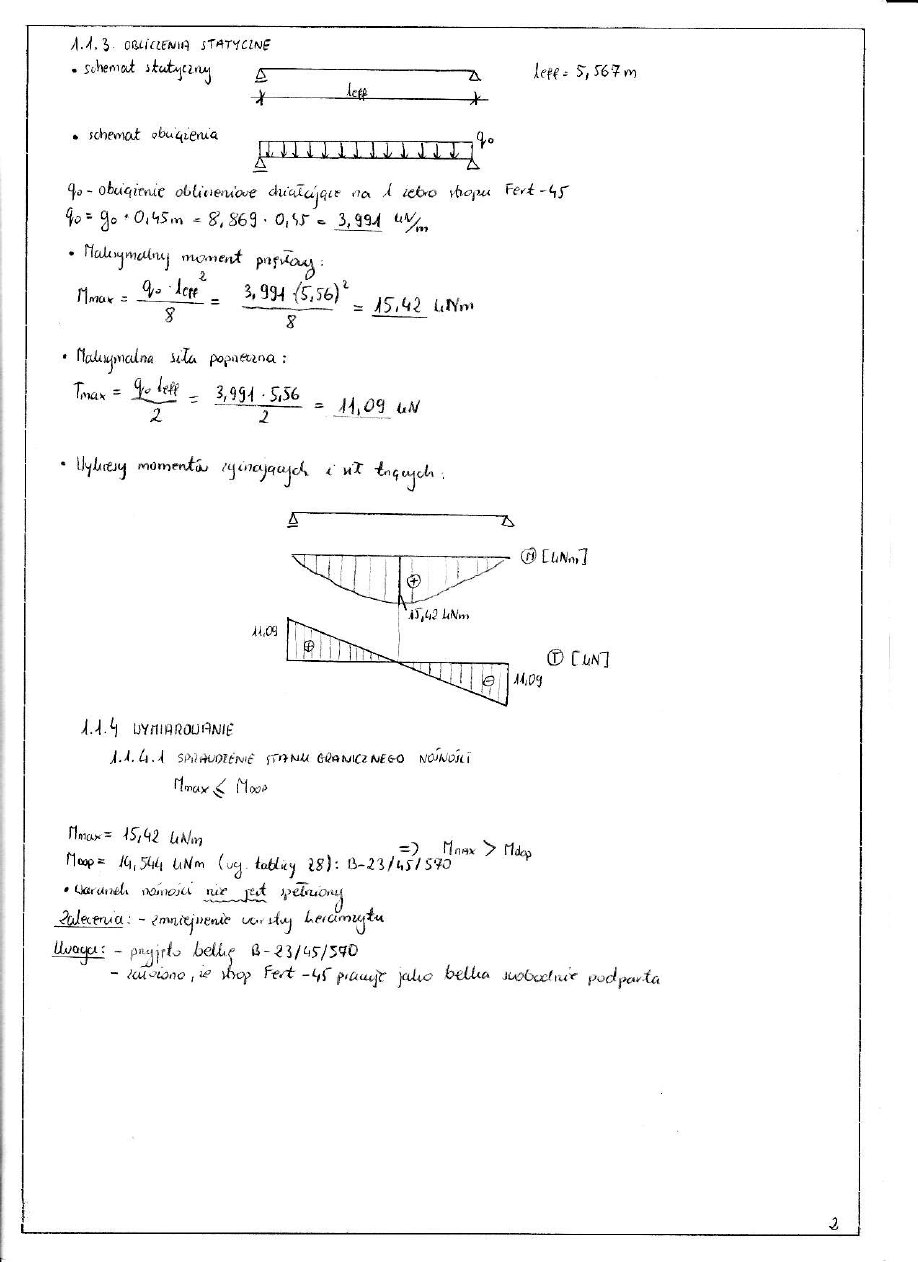 1.1.3. OBLICZENIA STATYCZNE
• schemat statyczny
leff = 5,567 m
leff
• schemat obciążenia
q₀
q₀ - obciążenie obliczeniowe działające na 1 żebro stropu Fert-45
q₀ = g₀ · 0,45m = 8,869 · 0,45 = 3,991 kN/m
• Maksymalny moment przęsłowy:
Mmax = q₀ · leff² / 8 = 3,991 · (5,56)² / 8 = 15,42 kNm
• Maksymalna siła poprzeczna:
Tmax = q₀ leff / 2 = 3,991 · 5,56 / 2 = 11,09 kN
• Wykresy momentów zginających i sił tnących:
Ⓜ [kNm]
⊕
15,42 kNm
11,09
⊕
Ⓣ [kN]
⊖
11,09
1.1.4 WYMIAROWANIE
1.1.4.1 SPRAWDZENIE STANU GRANICZNEGO NOŚNOŚCI
Mmax ≤ MDOP
Mmax = 15,42 kNm
=> MMAX > Mdop
MDOP = 14,544 kNm (wg. tablicy 28): B-23/45/570
• Warunek nośności nie jest spełniony
Zalecenia: - zmniejszenie warstwy keramzytu
Uwaga: - przyjęto belkę B-23/45/570
- założono, że strop Fert-45 pracuje jako belka swobodnie podparta
2